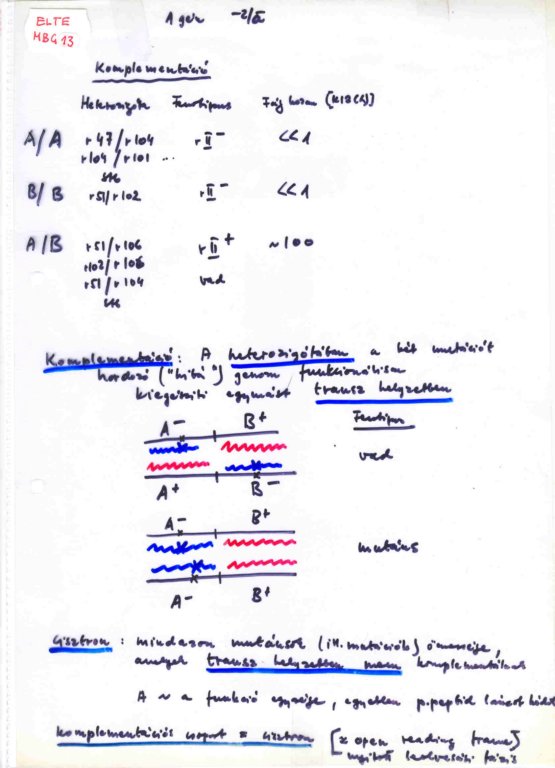 ELTE
MBG 13
A gén -2/a
Komplementáció
Heterozigóta Fenotípus Fág hozam [K12(λ)]
A/A r47/r104 rII⁻ <<1
r104/r101 ...
stb
B/B r51/r102 rII⁻ <<1
A/B r51/r106 rII⁺ ~100
r102/r106 vad
r51/r104
stb
Komplementáció: A heterozigótában a két mutációt
hordozó ("hibás") genom funkcionálisan
kiegészíti egymást transz helyzetben
A⁻ B⁺ Fenotípus
vad
A⁺ B⁻
A⁻ B⁺
mutáns
A⁻ B⁺
Cisztron: mindazon mutánsok (ill. mutációk) összessége,
amelyek transz helyzetben nem komplementálnak
A ~ a funkció egysége, egyetlen p.peptid láncot kódol
Komplementációs csoport = cisztron [≈ open reading frame]
nyitott leolvasási fázis